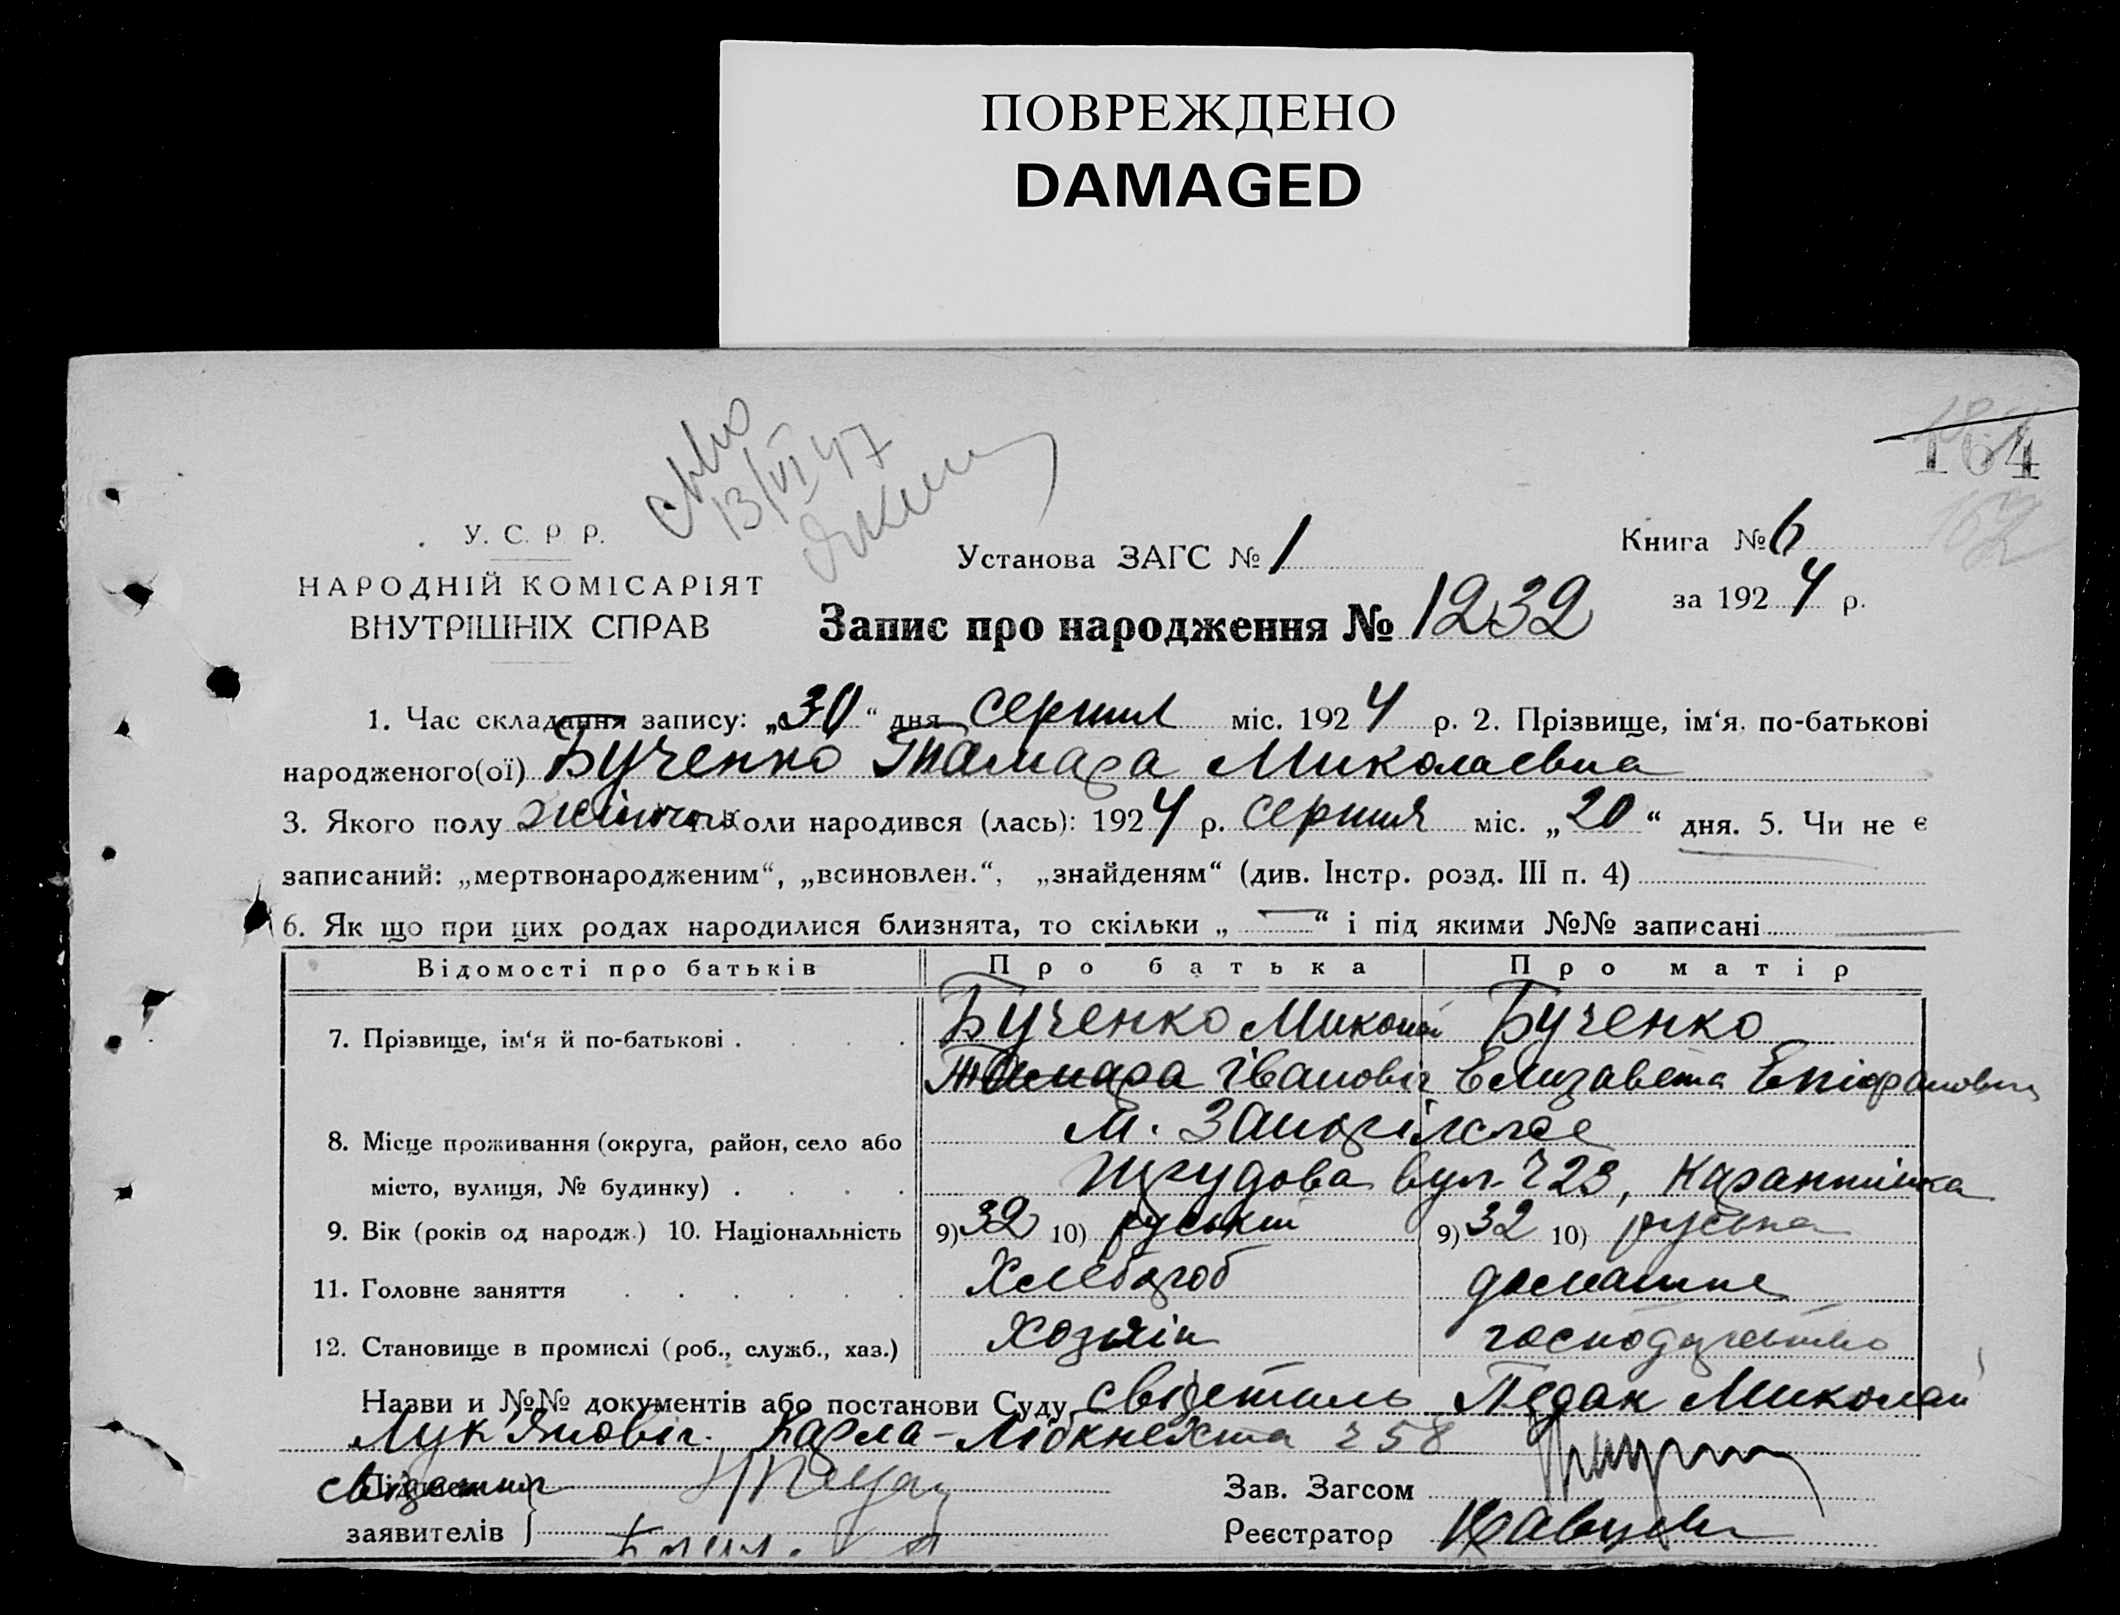 ПОВРЕЖДЕНО
DAMAGED
164
162
13/VI 47
У. С. Р Р.
НАРОДНІЙ КОМІСАРІЯТ
ВНУТРІШНІХ СПРАВ
Установа ЗАГС № 1
Книга № 6
за 1924 р.
Запис про народження № 1232
1. Час складання запису: „30“ дня серпня міс. 1924 р. 2. Прізвище, ім‘я, по-батькові
народженого(ої) Бученко Тамара Миколаевна
3. Якого полу жіночого Коли народився (лась): 1924 р. серпня міс. „20“ дня. 5. Чи не є
записаний: „мертвонародженим“, „всиновлен.“, „знайденям“ (див. Інстр. розд. III п. 4)
6. Як що при цих родах народилися близнята, то скільки „ — “ і під якими №№ записані
Відомості про батьків Про батька Про матір
7. Прізвище, ім‘я й по-батькові . Бученко Миколай Бученко
Тамара Іванович Елизавета Епіфановна
8. Місце проживання (округа, район, село або м.
місто, вулиця, № будинку) . Трудова вул. ч 23, Карантинка
9. Вік (років од народж.) 10. Національність 9) 32 10) руський 9) 32 10) руська
11. Головне заняття Хлебороб домашне
12. Становище в промислі (роб., служб., хаз.) Хозяін господарство
Назви и №№ документів або постанови Суду свідетиль Педак Миколай
Лук'янович. Карла-Лібкнехта ч 58
Підписи
заявителів
Зав. Загсом
Реєстратор